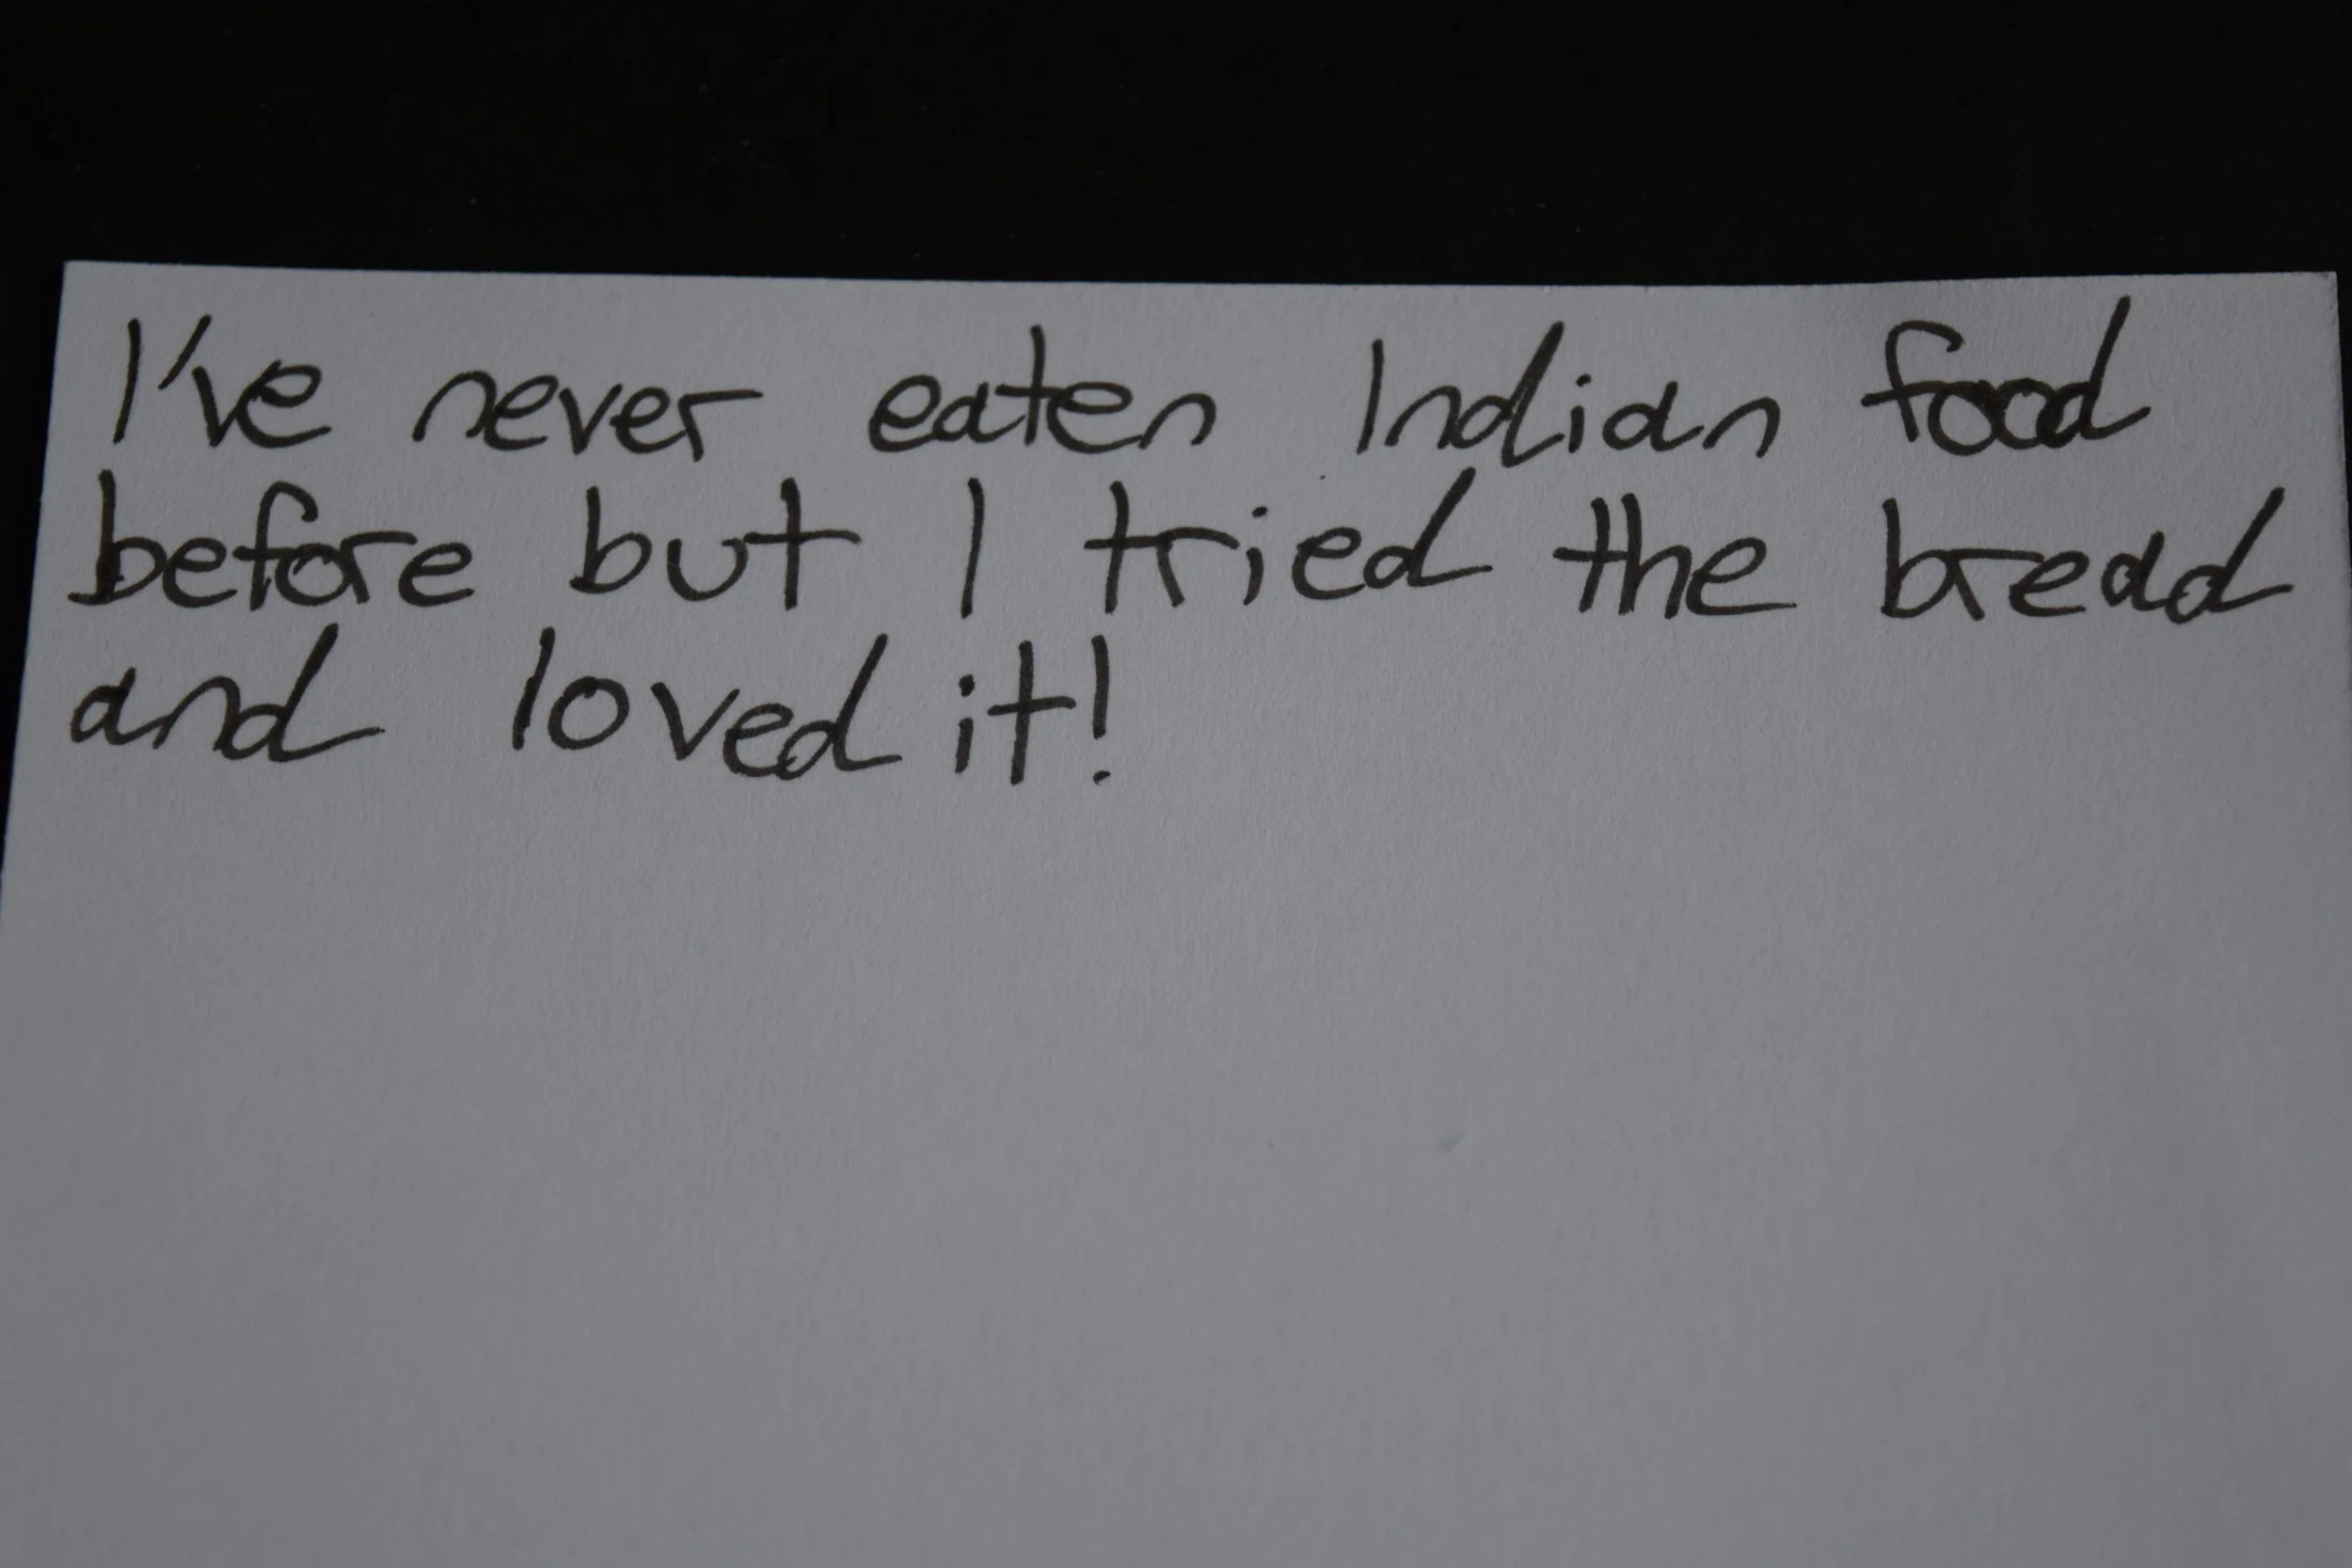 I've never eaten Indian food
before but I tried the bread
and loved it!